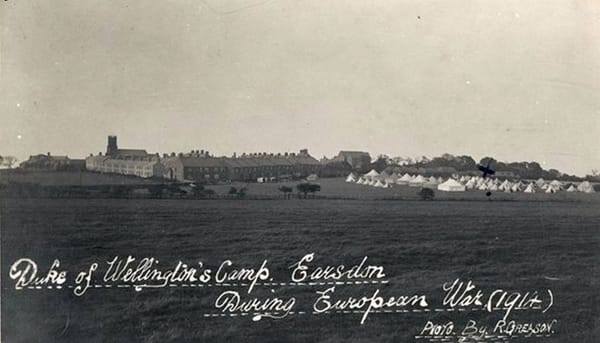 Duke of Wellington's Camp. Earsdon
During European War (1914)
Photo. By. R. Greason.